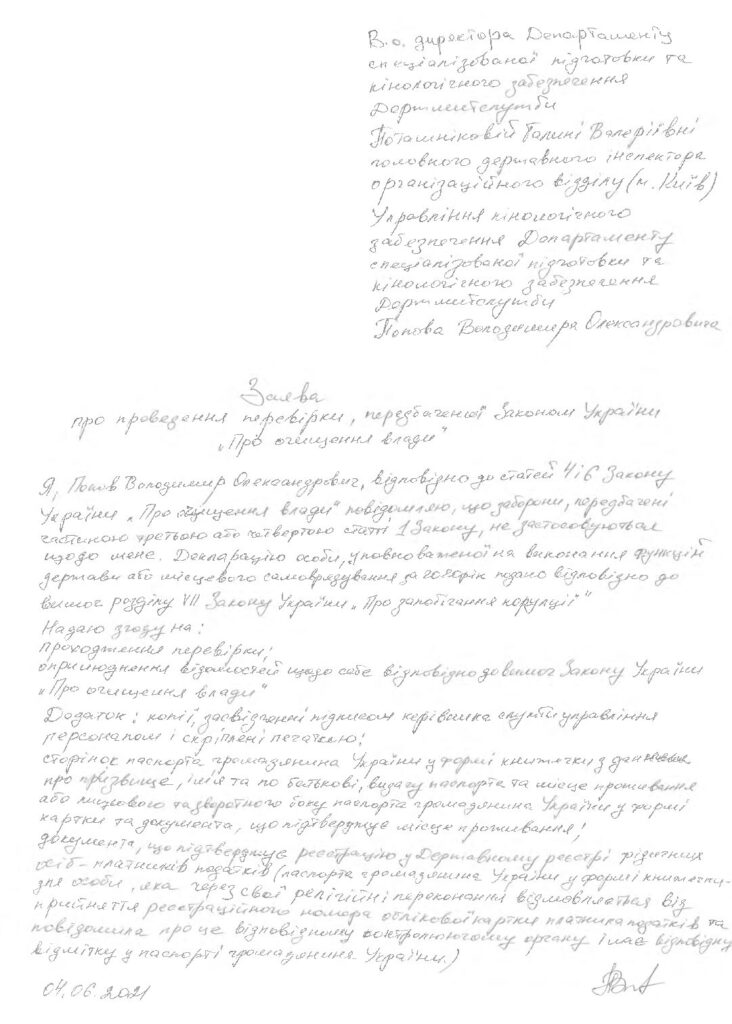 В.о. директора Департаменту
спеціалізованої підготовки та
кінологічного забезпечення
Держмитслужби
Поташніковій Галині Валеріївні
головного державного інспектора
організаційного відділу (м. Київ)
Управління кінологічного
забезпечення Департаменту
спеціалізованої підготовки та
кінологічного забезпечення
Держмитслужби
Попова Володимира Олександровича
Заява
про проведення перевірки, передбаченої Законом України
„Про очищення влади"
Я, Попов Володимир Олександрович, відповідно до статей 4 і 6 Закону
України „Про очищення влади" повідомляю, що заборони, передбачені
частиною третьою або четвертою статті 1 Закону, не застосовуються
щодо мене. Декларацію особи, уповноваженої на виконання функцій
держави або місцевого самоврядування за 2020 рік подано відповідно до
вимог розділу VII Закону України „Про запобігання корупції"
Надаю згоду на:
проходження перевірки;
оприлюднення відомостей щодо себе відповідно до вимог Закону України
„Про очищення влади"
Додаток: копії, засвідченні підписом керівника служби управління
персоналом і скріплені печаткою:
сторінок паспорта громадянина України у формі книжечки з даними
про прізвище, ім'я та по батькові, видачу паспорта та місце проживання
або лицьового та зворотного боку паспорта громадянина України у формі
картки та документа, що підтверджує місце проживання;
документа, що підтверджує реєстрацію у Державному реєстрі фізичних
осіб - платників податків (паспорта громадянина України у формі книжечки-
для особи, яка через свої релігійні переконання відмовляється від
прийняття реєстраційного номера облікової картки платника податків та
повідомила про це відповідному контролюючому органу і має відповідну
відмітку у паспорті громадянина України.)
04.06.2021